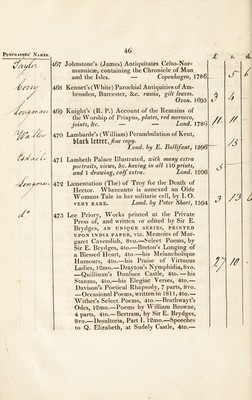 46
PURCHASERS' NAMES.
£ s. d.
Taylor
467 Johnstone's (James) Antiquitates Celto-Nor-
mannicæ, containing the Chronicle of Man
and the Isles. — Copenhagen, 1786
5 6
468 Kennet's (White) Parochial Antiquities of Am-
brosden, Burcester, &c. russia, gilt leaves.
Oxon. 1695
3 4
Longman
469 Knight's (R. P.) Account of the Remains of
the Worship of Priapus, plates, red morocco,
joints, &c. — Lond. 1786
11 11
470 Lambarde's (William) Perambulation of Kent,
black letter, fine copy.
Lond. by E. Bollifant, 1596
15
471 Lambeth Palace Illustrated, with many extra
portraits, views, &c. having in all 110 prints,
and 1 drawing, calf extra. Lond. 1806
Longman
472 Lamentation (The) of Troy for the Death of
Hector. Whereunto is annexed an Olde
Womans Tale in her solitarie cell, by I. O.
VERY RARE. Lond. by Peter Short, 1594
3 13 6
do
473 Lee Priory, Works printed at the Private
Press of, and written or edited by Sir E.
Brydges, AN UNIQUE SERIES, PRINTED
UPON INDIA PAPER, viz. Memoirs of Mar-
garet Cavendish, 8vo.—Select Poems, by
Sir E. Brydges, 4to—Breton's Longing of
a Blessed Heart, 4to—his Melancholique
Humours, 4to.—his Praise of Virtuous
Ladies, 12mo.—Drayton's Nymphidia, 8vo.
—Quillinan's Dunluce Castle, 4to.—his
Stanzas, 4to—his Elegiac Verses, 4to—
Davison's Poetical Rhapsody, 7 parts, 8vo.
—Occasional Poems, written in 1811, 4to.—
Wither's Select Poems, 4to—Brathwayt's
Odes, 12mo.—Poems by William Browne,
4 parts, 4to—Bertram, by Sir E. Brydges,
8vo.—Desultoria, Part I. 12mo.—Speeches
to Q. Elizabeth, at Sudely Castle, 4to.—
27 10